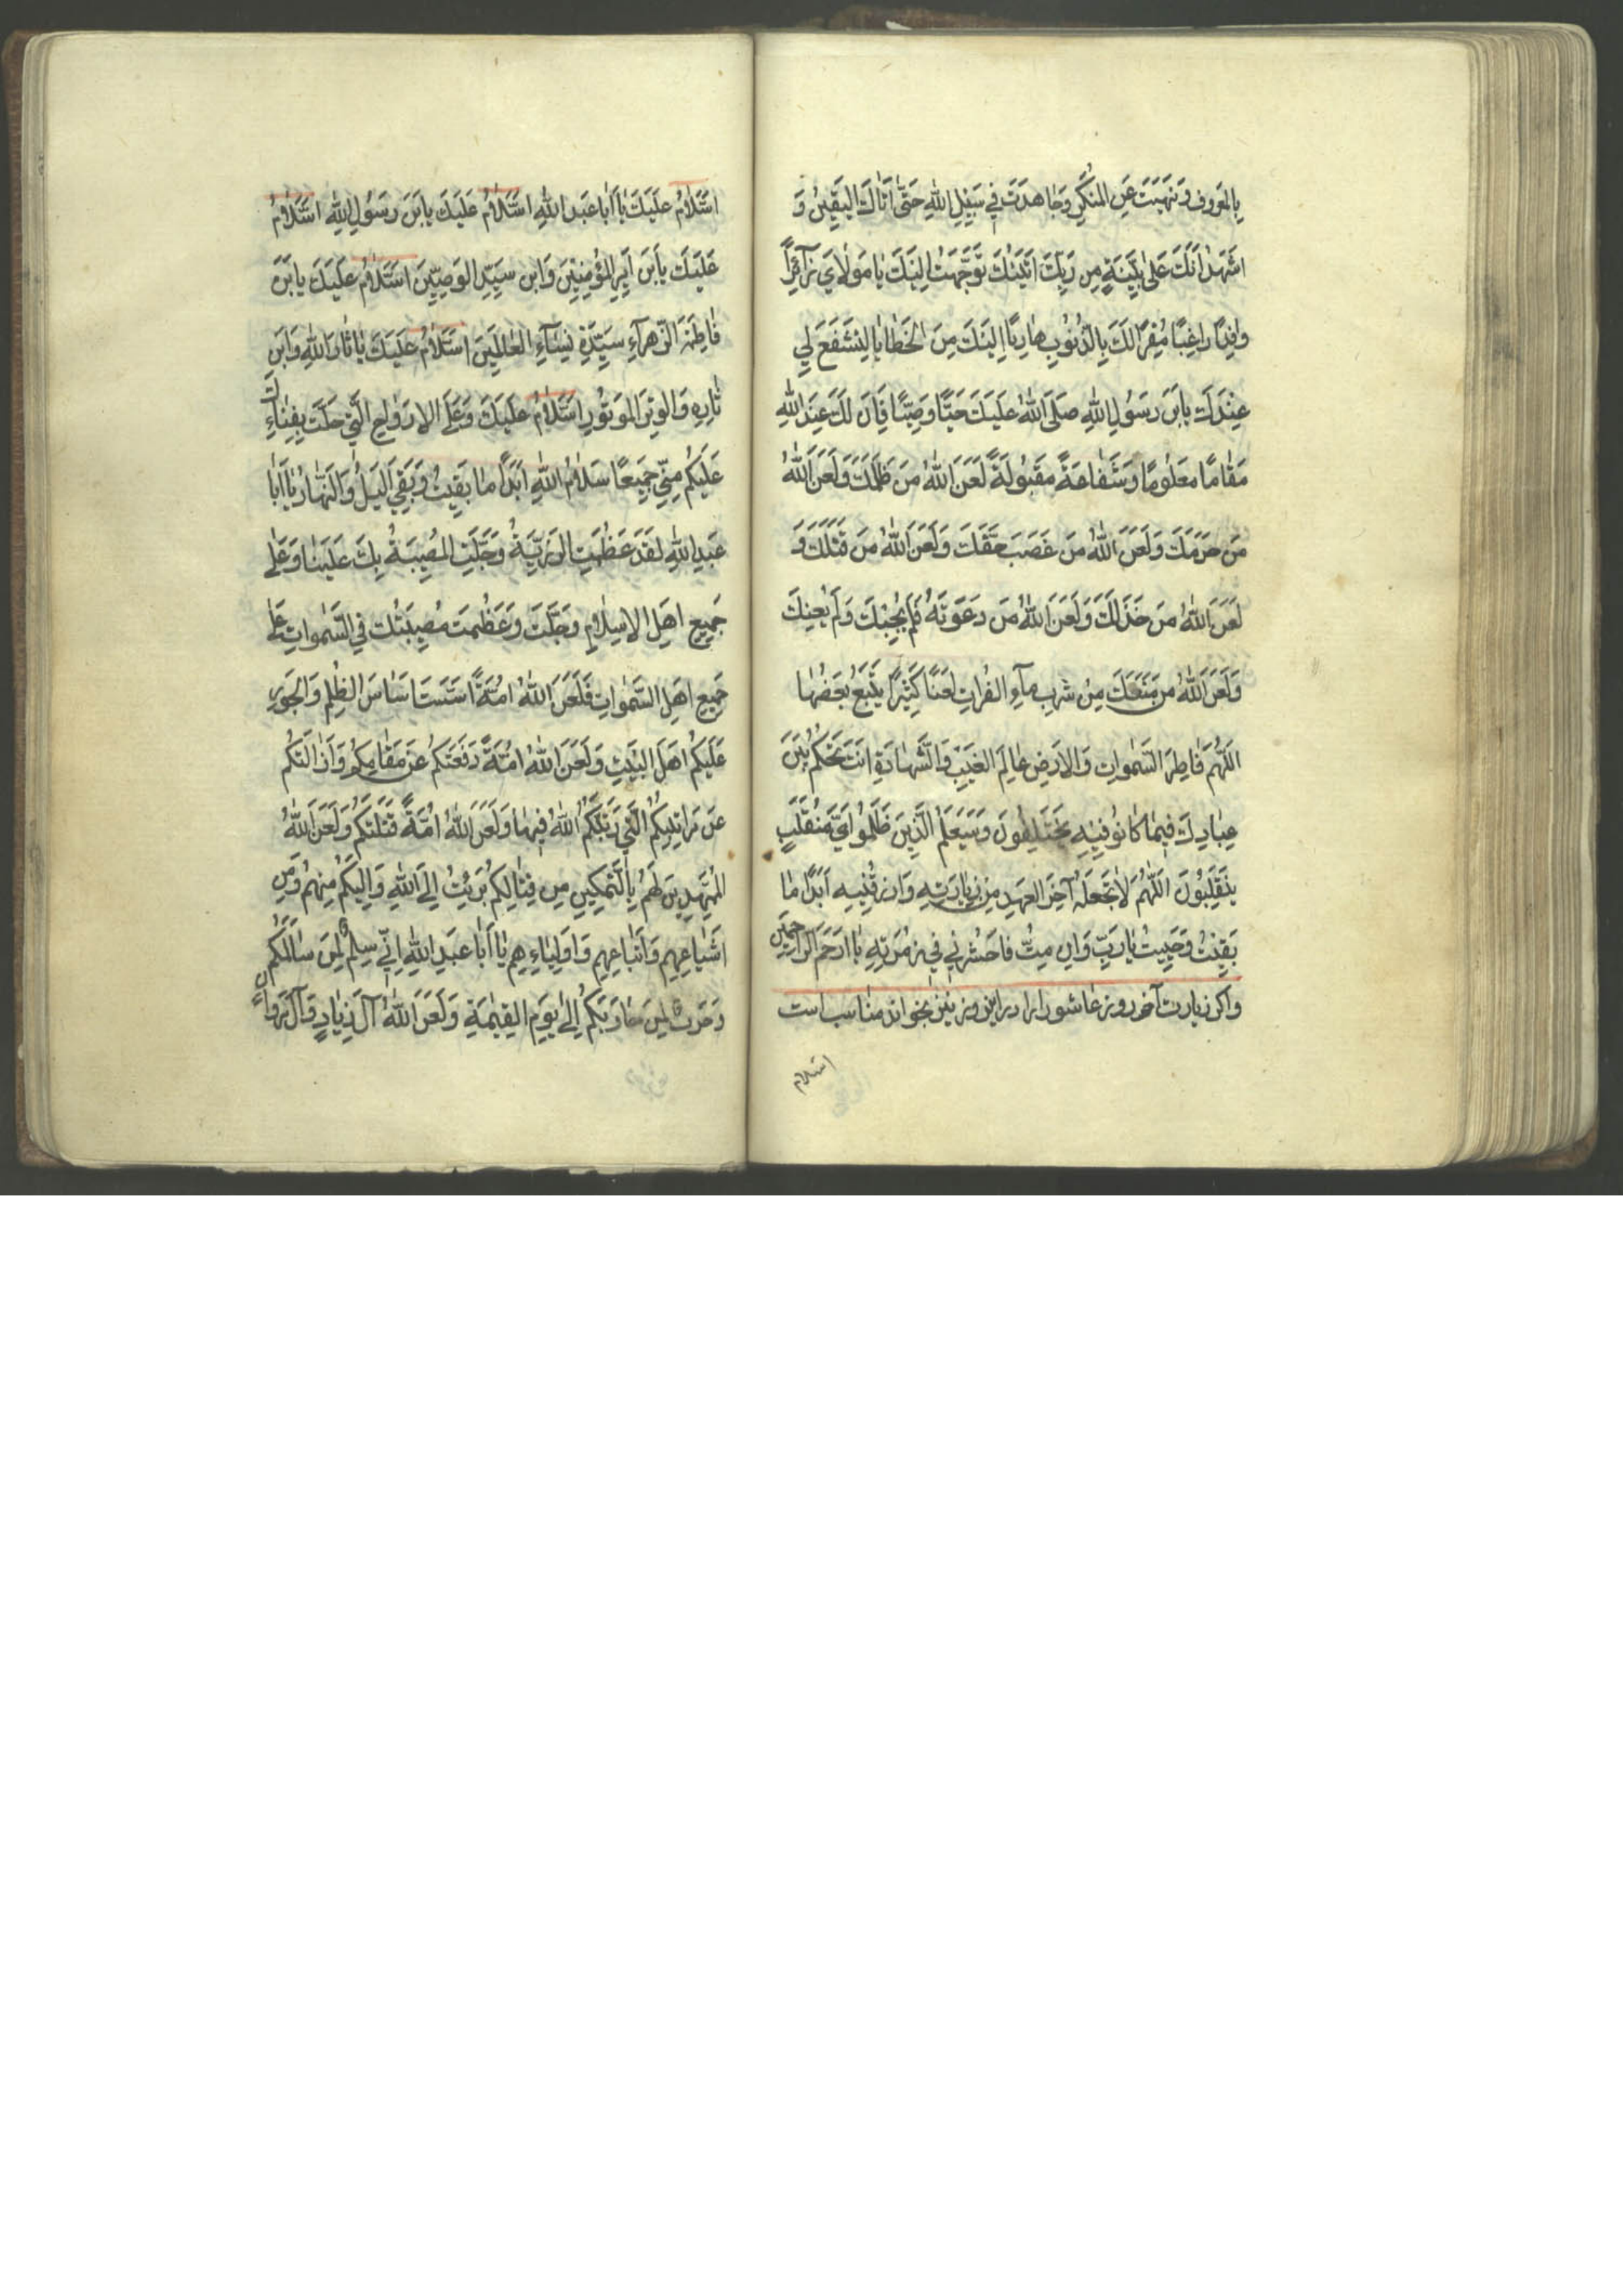 بِالمَعرُوفِ وَنَهَيتَ عَنِ المُنكَرِ وَجَاهَدتَ فِي سَبِيلِ اللهِ حَتّىٰ اَتَاكَ اليَقِينُ وَ
اَشهَدُ اَنَّكَ عَلىٰ بَيِّنَةٍ مِن رَبِّكَ اَتَيتُكَ تَوَجَّهتُ اِلَيكَ يَا مَولَايَ زَآئِرًا
وَافِدًا رَاغِبًا مُقِرًّا لَكَ بِالذُّنُوبِ هَارِبًا اِلَيكَ مِنَ الخَطَايَا لِتَشفَعَ لِي
عِندَكَ يَابنَ رَسُولِ اللهِ صَلَّى اللهُ عَلَيكَ حَيًّا وَمَيِّتًا فَاِنَّ لَكَ عِندَ اللهِ
مَقَامًا مَعلُومًا وَشَفَاعَةً مَقبُولَةً لَعَنَ اللهُ مَن ظَلَمَكَ وَلَعَنَ اللهُ
مَن حَرَمَكَ وَلَعَنَ اللهُ مَن غَصَبَ حَقَّكَ وَلَعَنَ اللهُ مَن قَتَلَكَ وَ
لَعَنَ اللهُ مَن خَذَلَكَ وَلَعَنَ اللهُ مَن دَعَوتَهُ فَلَم يُجِبكَ وَلَم يُعِنكَ
وَلَعَنَ اللهُ مَن مَنَعَكَ مِن شُربِ مَآءِ الفُرَاتِ لَعنًا كَثِيرًا يَتبَعُ بَعضُهَا
اَللّهُمَّ فَاطِرَ السَّمٰوَاتِ وَالاَرضِ عَالِمَ الغَيبِ وَالشَّهَادَةِ اَنتَ تَحكُمُ بَينَ
عِبَادِكَ فِيمَا كَانُو فِيهِ يَختَلِفُونَ وَسَيَعلَمُ الَّذِينَ ظَلَمُوا اَيَّ مُنقَلَبٍ
يَنقَلِبُونَ اَللّهُمَّ لَا تَجعَلهُ آخِرَ العَهدِ مِن زِيَارَتِهِ وَارزُقنِيهِ اَبَدًا مَا
بَقِيتُ وَحَيِيتُ يَا رَبِّ وَاِن مِتُّ فَاحشُرنِي فِي زُمرَتِهِ يَا اَرحَمَ الرَّاحِمِين
واكر زيارت آخر روز عاشورا را در اين روز نيز بخوانند مناسب است
السلام
اَلسَّلَامُ عَلَيكَ يَا اَبَا عَبدِ اللهِ اَلسَّلَامُ عَلَيكَ يَابنَ رَسُولِ اللهِ اَلسَّلَامُ
عَلَيكَ يَابنَ اَمِيرِ المُؤمِنِينَ وَابنَ سَيِّدِ الوَصِيِّينَ اَلسَّلَامُ عَلَيكَ يَابنَ
فَاطِمَةَ الزَّهرَآءِ سَيِّدَةِ نِسَآءِ العَالَمِينَ اَلسَّلَامُ عَلَيكَ يَا ثَارَ اللهِ وَابنَ
ثَارِهِ وَالوِترَ المَوتُورِ اَلسَّلَامُ عَلَيكَ وَعَلَى الاَروَاحِ الَّتِي حَلَّت بِفِنَائِكَ
عَلَيكُم مِنِّي جَمِيعًا سَلَامُ اللهِ اَبَدًا مَا بَقِيتُ وَبَقِيَ اللَيلُ وَالنَّهَارُ يَا اَبَا
عَبدِ اللهِ لَقَد عَظُمَتِ الرَّزِيَّةُ وَجَلَّتِ المُصِيبَةُ بِكَ عَلَينَا وَعَلىٰ
جَمِيعِ اَهلِ الاِسلَامِ وَجَلَّت وَعَظُمَت مُصِيبَتُكَ فِي السَّمٰوَاتِ عَلىٰ
جَمِيعِ اَهلِ السَّمٰوَاتِ فَلَعَنَ اللهُ اُمَّةً اَسَّسَت اَسَاسَ الظُّلمِ وَالجَورِ
عَلَيكُم اَهلَ البَيتِ وَلَعَنَ اللهُ اُمَّةً دَفَعَتكُم عَن مَقَامِكُم وَاَزَالَتكُم
عَن مَرَاتِبِكُمُ الَّتِي رَتَّبَكُمُ اللهُ فِيهَا وَلَعَنَ اللهُ اُمَّةً قَتَلَتكُم وَلَعَنَ اللهُ
المُمَهِّدِينَ لَهُم بِالتَّمكِينِ مِن قِتَالِكُم بَرِئتُ اِلَى اللهِ وَاِلَيكُم مِنهُم وَمِن
اَشيَاعِهِم وَاَتبَاعِهِم وَاَولِيَاءِهِم يَا اَبَا عَبدِ اللهِ اِنِّي سِلمٌ لِمَن سَالَمَكُم
وَحَربٌ لِمَن حَارَبَكُم اِلىٰ يَومِ القِيٰمَةِ وَلَعَنَ اللهُ آلَ زِيَادٍ وَآلَ مَروَانَ